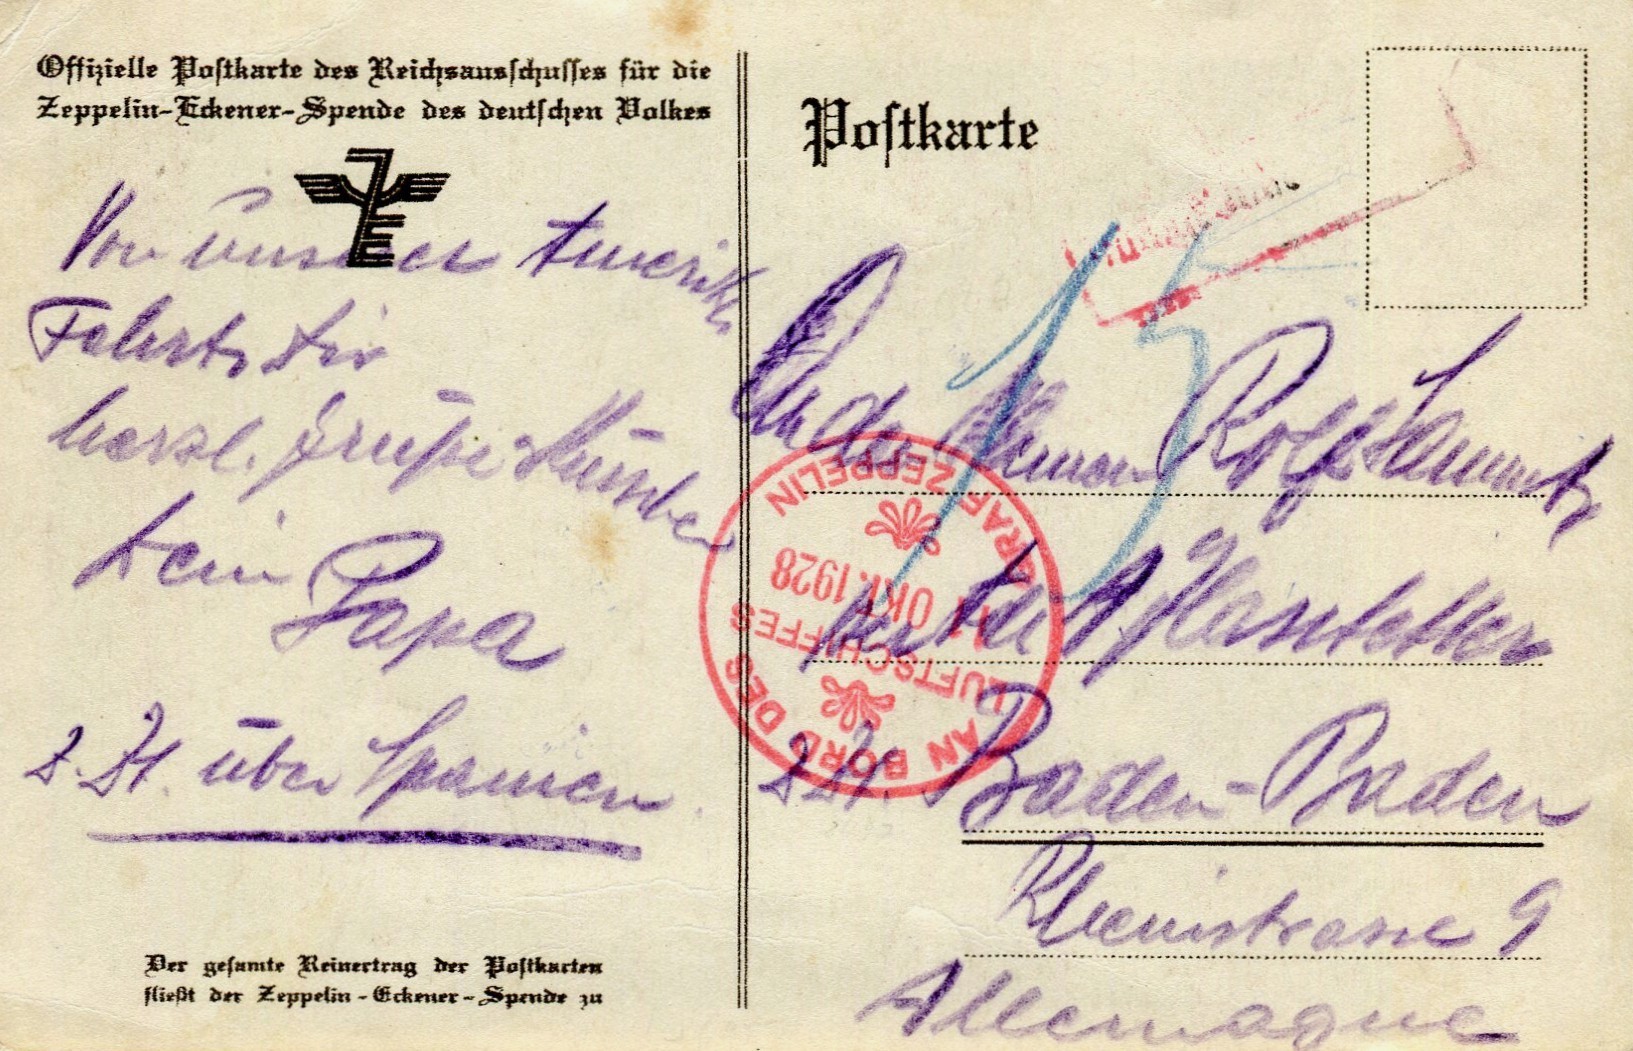 Offizielle Postkarte des Reichsausschusses für die
Zeppelin-Eckener-Spende des deutschen Volkes
Von unserer Amerika
Fahrt Dir
herzl. Grüße
Dein Papa
z. Zt. über Spanien
Der gesamte Reinertrag der Postkarten
fließt der Zeppelin-Eckener-Spende zu
Postkarte
15
Rolf
AN BORD DES
LUFTSCHIFFES
11 OKT. 1928
GRAF ZEPPELIN
z. Zt. Baden-Baden
Rheinstrasse 9
Allemagne